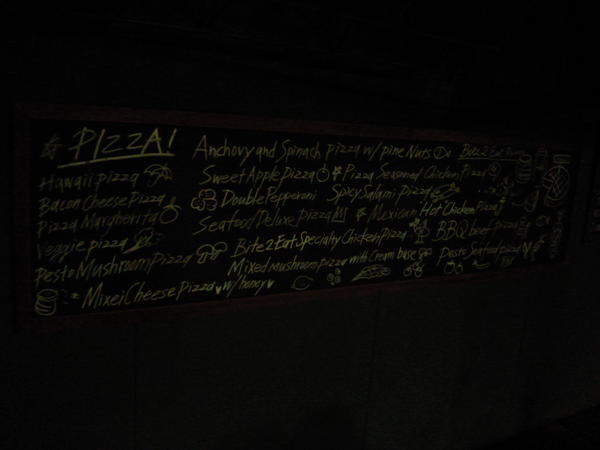 PIZZA!
Hawaii pizza
Bacon Cheese Pizza
Pizza Margherita
Veggie pizza
Pesto Mushroom Pizza
Mixei Cheese Pizza w/ honey
Anchovy and Spinach pizza w/ pine Nuts
Sweet Apple Pizza
Pizza Seasoned Chicken Pizza
Double Pepperoni
Spicy Salami Pizza
Seafood Deluxe pizza
Mexican Hot Chicken Pizza
Bite 2 Eat Specialty Chicken Pizza
BBQ beef pizza
Mixed mushroom pizza with Cream base
Pesto Seafood pizza